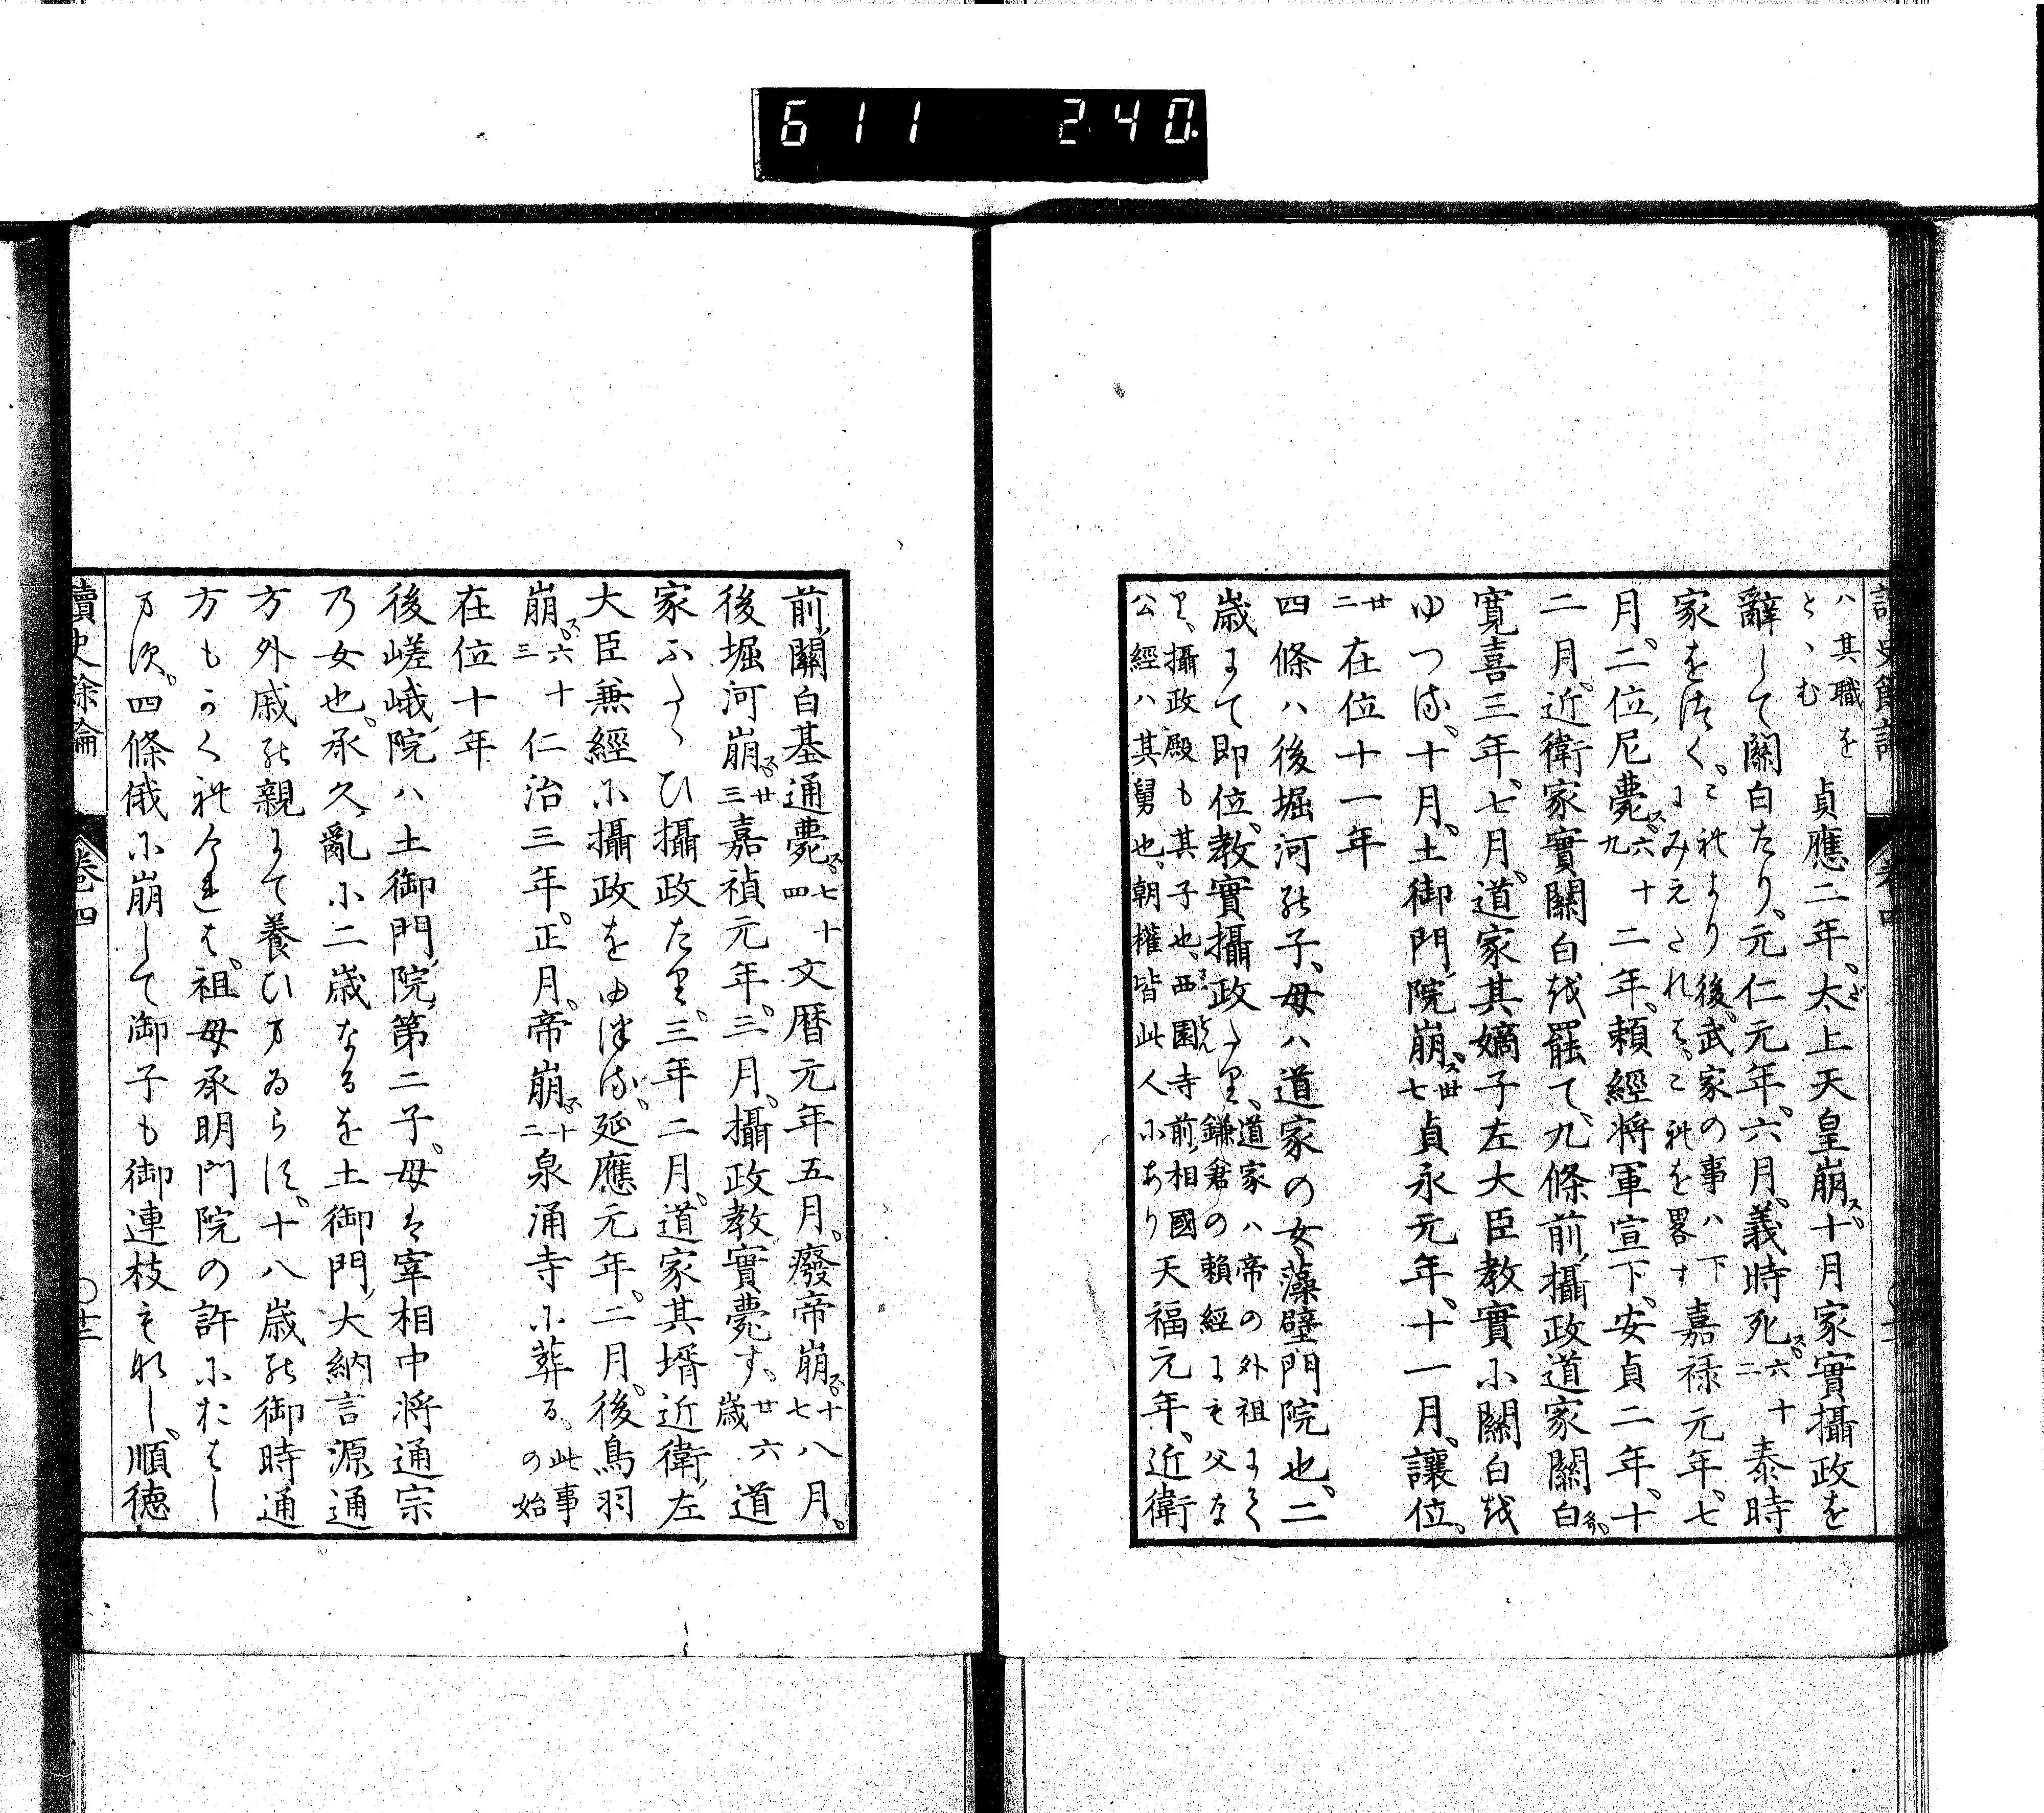 611 240.
ハ其職を
とゝむ
貞應二年、太上天皇崩ス、十月家實攝政を
辭して關白たり、元仁元年、六月、義時死ス、六十二 泰時
家をつく、これより後、武家の事ハ下にみえたれは、これを畧す 嘉禄元年、七
月、二位尼薨ス、六十九 二年、頼經将軍宣下、安貞二年、十
二月、近衛家實關白を罷て、九條前攝政道家關白
寛喜三年、七月、道家其嫡子左大臣教實に關白を
ゆつる、十月、土御門院崩ス、卅七 貞永元年、十一月、讓位、
廿二 在位十一年
四條ハ後堀河の子、母ハ道家の女藻璧門院也、二
歳にて即位、教實攝政たり、道家ハ帝の外祖にて鎌倉の頼經にも父な
り、攝政殿も其子也、西園寺前相國
公經ハ其舅也、朝權皆此人にあり 天福元年、近衛
前關白基通薨ス、七十四 文暦元年五月、廢帝崩 十七 八月、
後堀河崩 廿三 嘉禎元年、三月、攝政教實薨す、廿六歳 道
家ふたゝひ攝政たり、三年二月、道家其壻近衛左
大臣兼經に攝政をゆつる、延應元年、二月、後鳥羽
崩ス、六十三 仁治三年、正月、帝崩 十二 泉涌寺に葬る、此事の始
在位十年
後嵯峨院ハ土御門院第二子、母は宰相中将通宗
乃女也、承久亂に二歳なるを土御門大納言源通
方外戚の親にて養ひまゐらす、十八歳の御時通
方もかくれ给れは、祖母承明門院の許におはし
ます、四條俄に崩して御子も御連枝もなし、順徳
讀史餘論 卷四 〇廿二